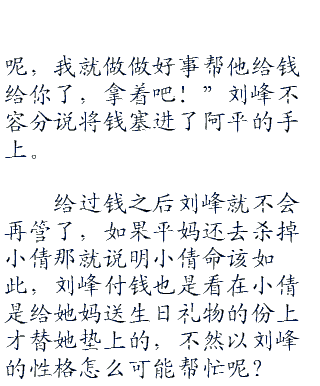 呢，我就做做好事帮他给钱
给你了，拿着吧！”刘峰不
容分说将钱塞进了阿平的手
上。
给过钱之后刘峰就不会
再管了，如果平妈还去杀掉
小倩那就说明小倩命该如
此，刘峰付钱也是看在小倩
是给她妈送生日礼物的份上
才替她垫上的，不然以刘峰
的性格怎么可能帮忙呢？